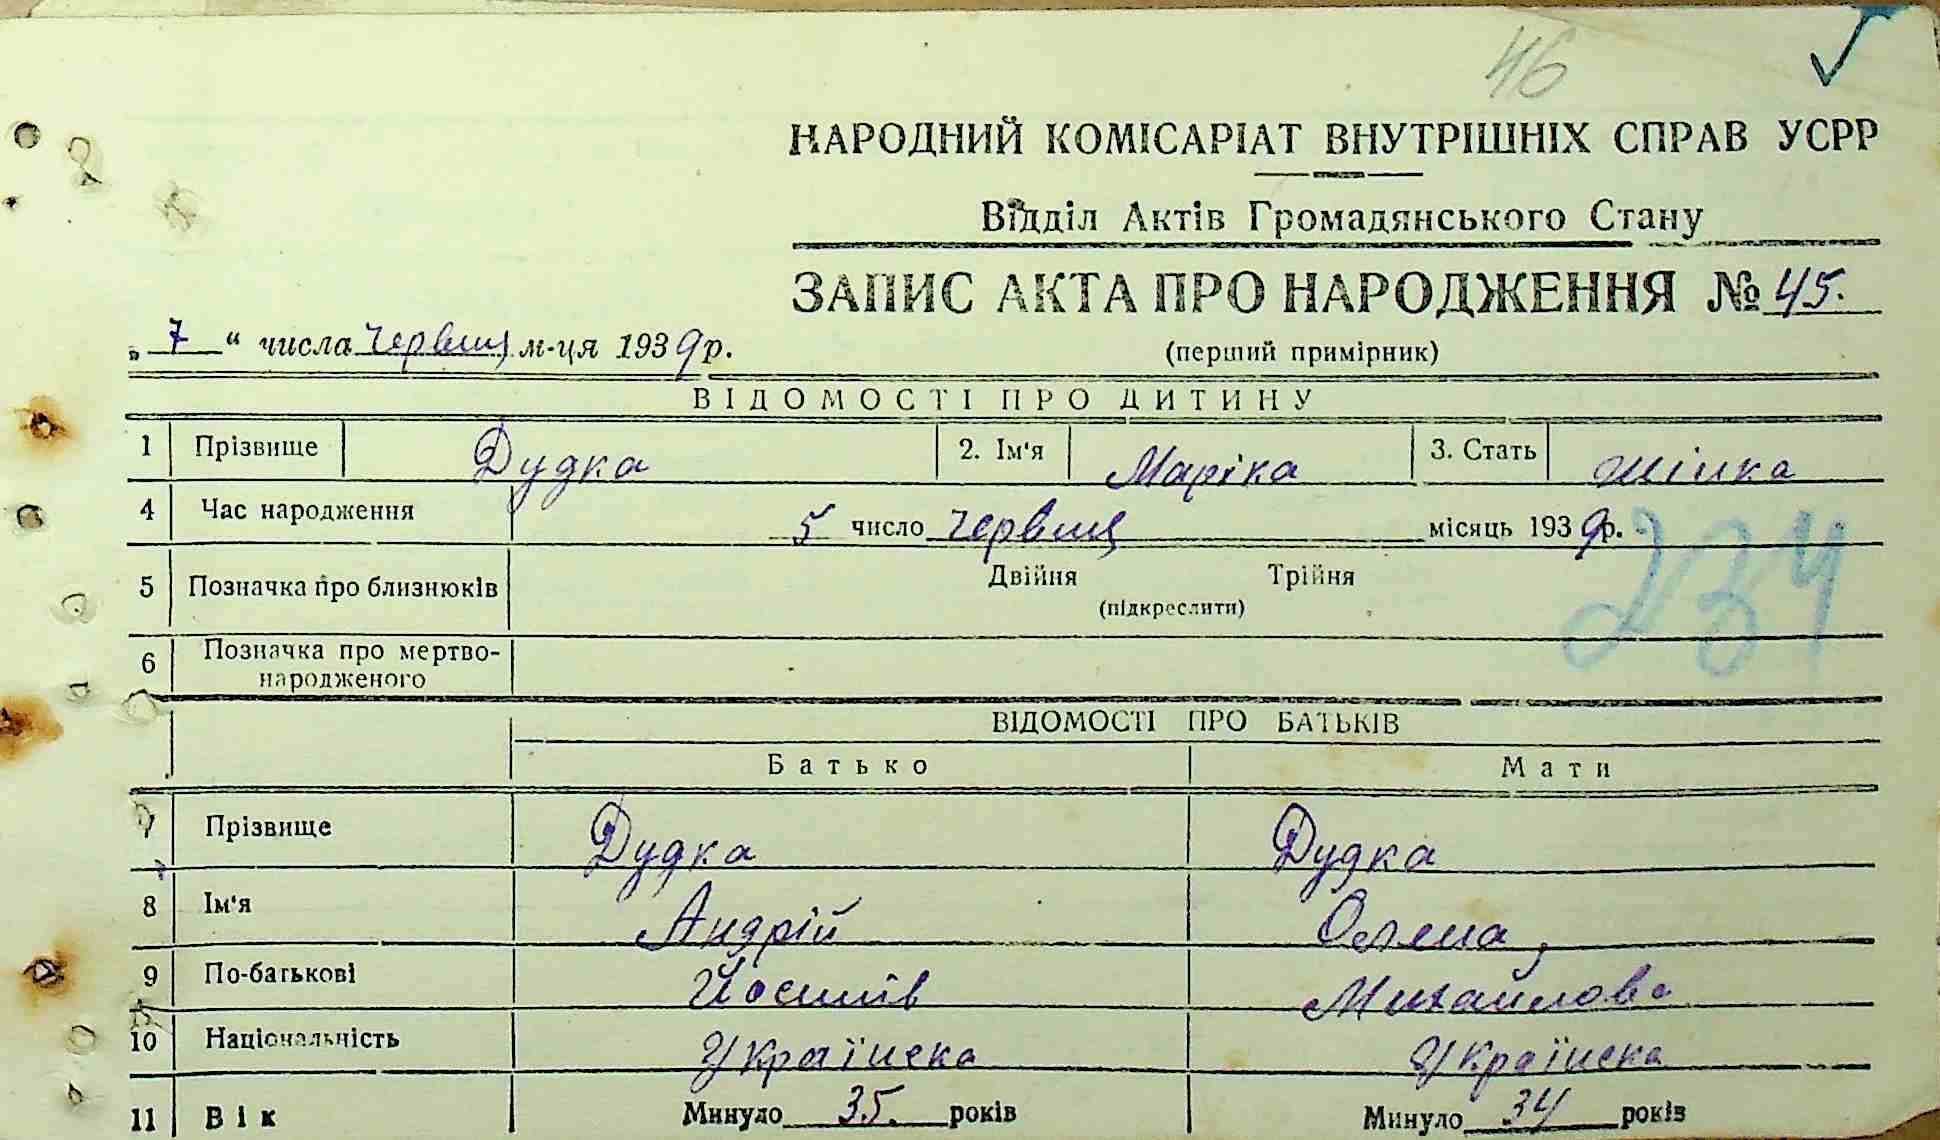 46
НАРОДНИЙ КОМІСАРІАТ ВНУТРІШНІХ СПРАВ УСРР
Відділ Актів Громадянського Стану
ЗАПИС АКТА ПРО НАРОДЖЕННЯ № 45.
„ 7 “ числа червця м-ця 1939 р.
(перший примірник)
ВІДОМОСТІ ПРО ДИТИНУ
1 Прізвище Дудка 2. Ім'я Маріка 3. Стать жінка
4 Час народження 5 число червця місяць 1939 р.
234
5 Позначка про близнюків Двійня Трійня
(підкреслити)
6 Позначка про мертво-
народженого
ВІДОМОСТІ ПРО БАТЬКІВ
Батько Мати
7 Прізвище Дудка Дудка
8 Ім'я Андрій Олена,
9 По-батькові Йосипів Михайлова
10 Національність Українска Українска
11 Вік Минуло 35. років Минуло 34 років